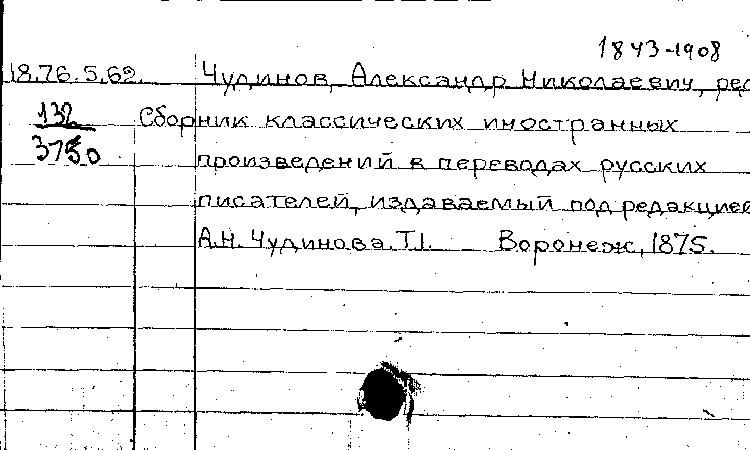 1843-1908
18.76.5.62. Чудинов, Александр Николаевич, ред
132 Сборник классических иностранных
3750 произведений в переводах русских
писателей, издаваемый под редакцией
А.Н. Чудинова. Т.I. Воронеж, 1875.